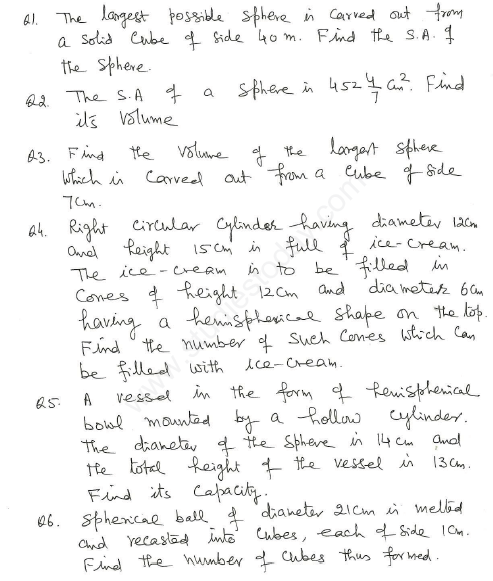 Q1. The largest possible sphere is carved out from
a solid cube of side 40 m. Find the S.A. of
the sphere.
Q2. The S.A of a sphere is 452 4/7 cm². Find
its volume
Q3. Find the volume of the largest sphere
which is carved out from a cube of side
7cm.
Q4. Right circular cylinder having diameter 12cm
and height 15cm is full of ice-cream.
The ice-cream is to be filled in
cones of height 12cm and diameter 6cm
having a hemispherical shape on the top.
Find the number of such cones which can
be filled with ice-cream.
Q5. A vessel in the form of hemispherical
bowl mounted by a hollow cylinder.
The diameter of the sphere is 14cm and
the total height of the vessel is 13cm.
Find its capacity.
Q6. Spherical ball of diameter 21cm is melted
and recasted into cubes, each of side 1cm.
Find the number of cubes thus formed.